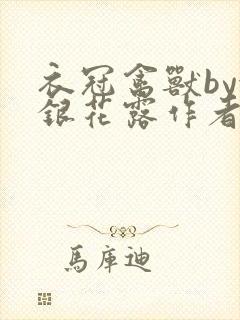 衣冠禽獸by
銀花露作者
馬庫迪